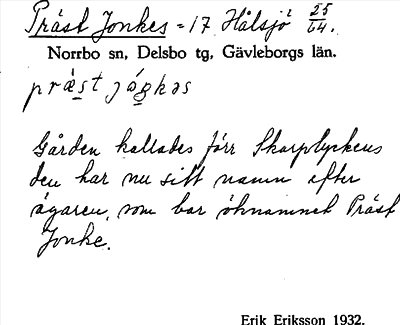 Präst Jonkes = 17 Hålsjö 25/64.
Norrbo sn, Delsbo tg, Gävleborgs län.
præst jåŋkəs
Gården kallades förr Skarplyckens
den har nu sitt namn efter
ägaren, som bar öknamnet Präst
Jonke.
Erik Eriksson 1932.